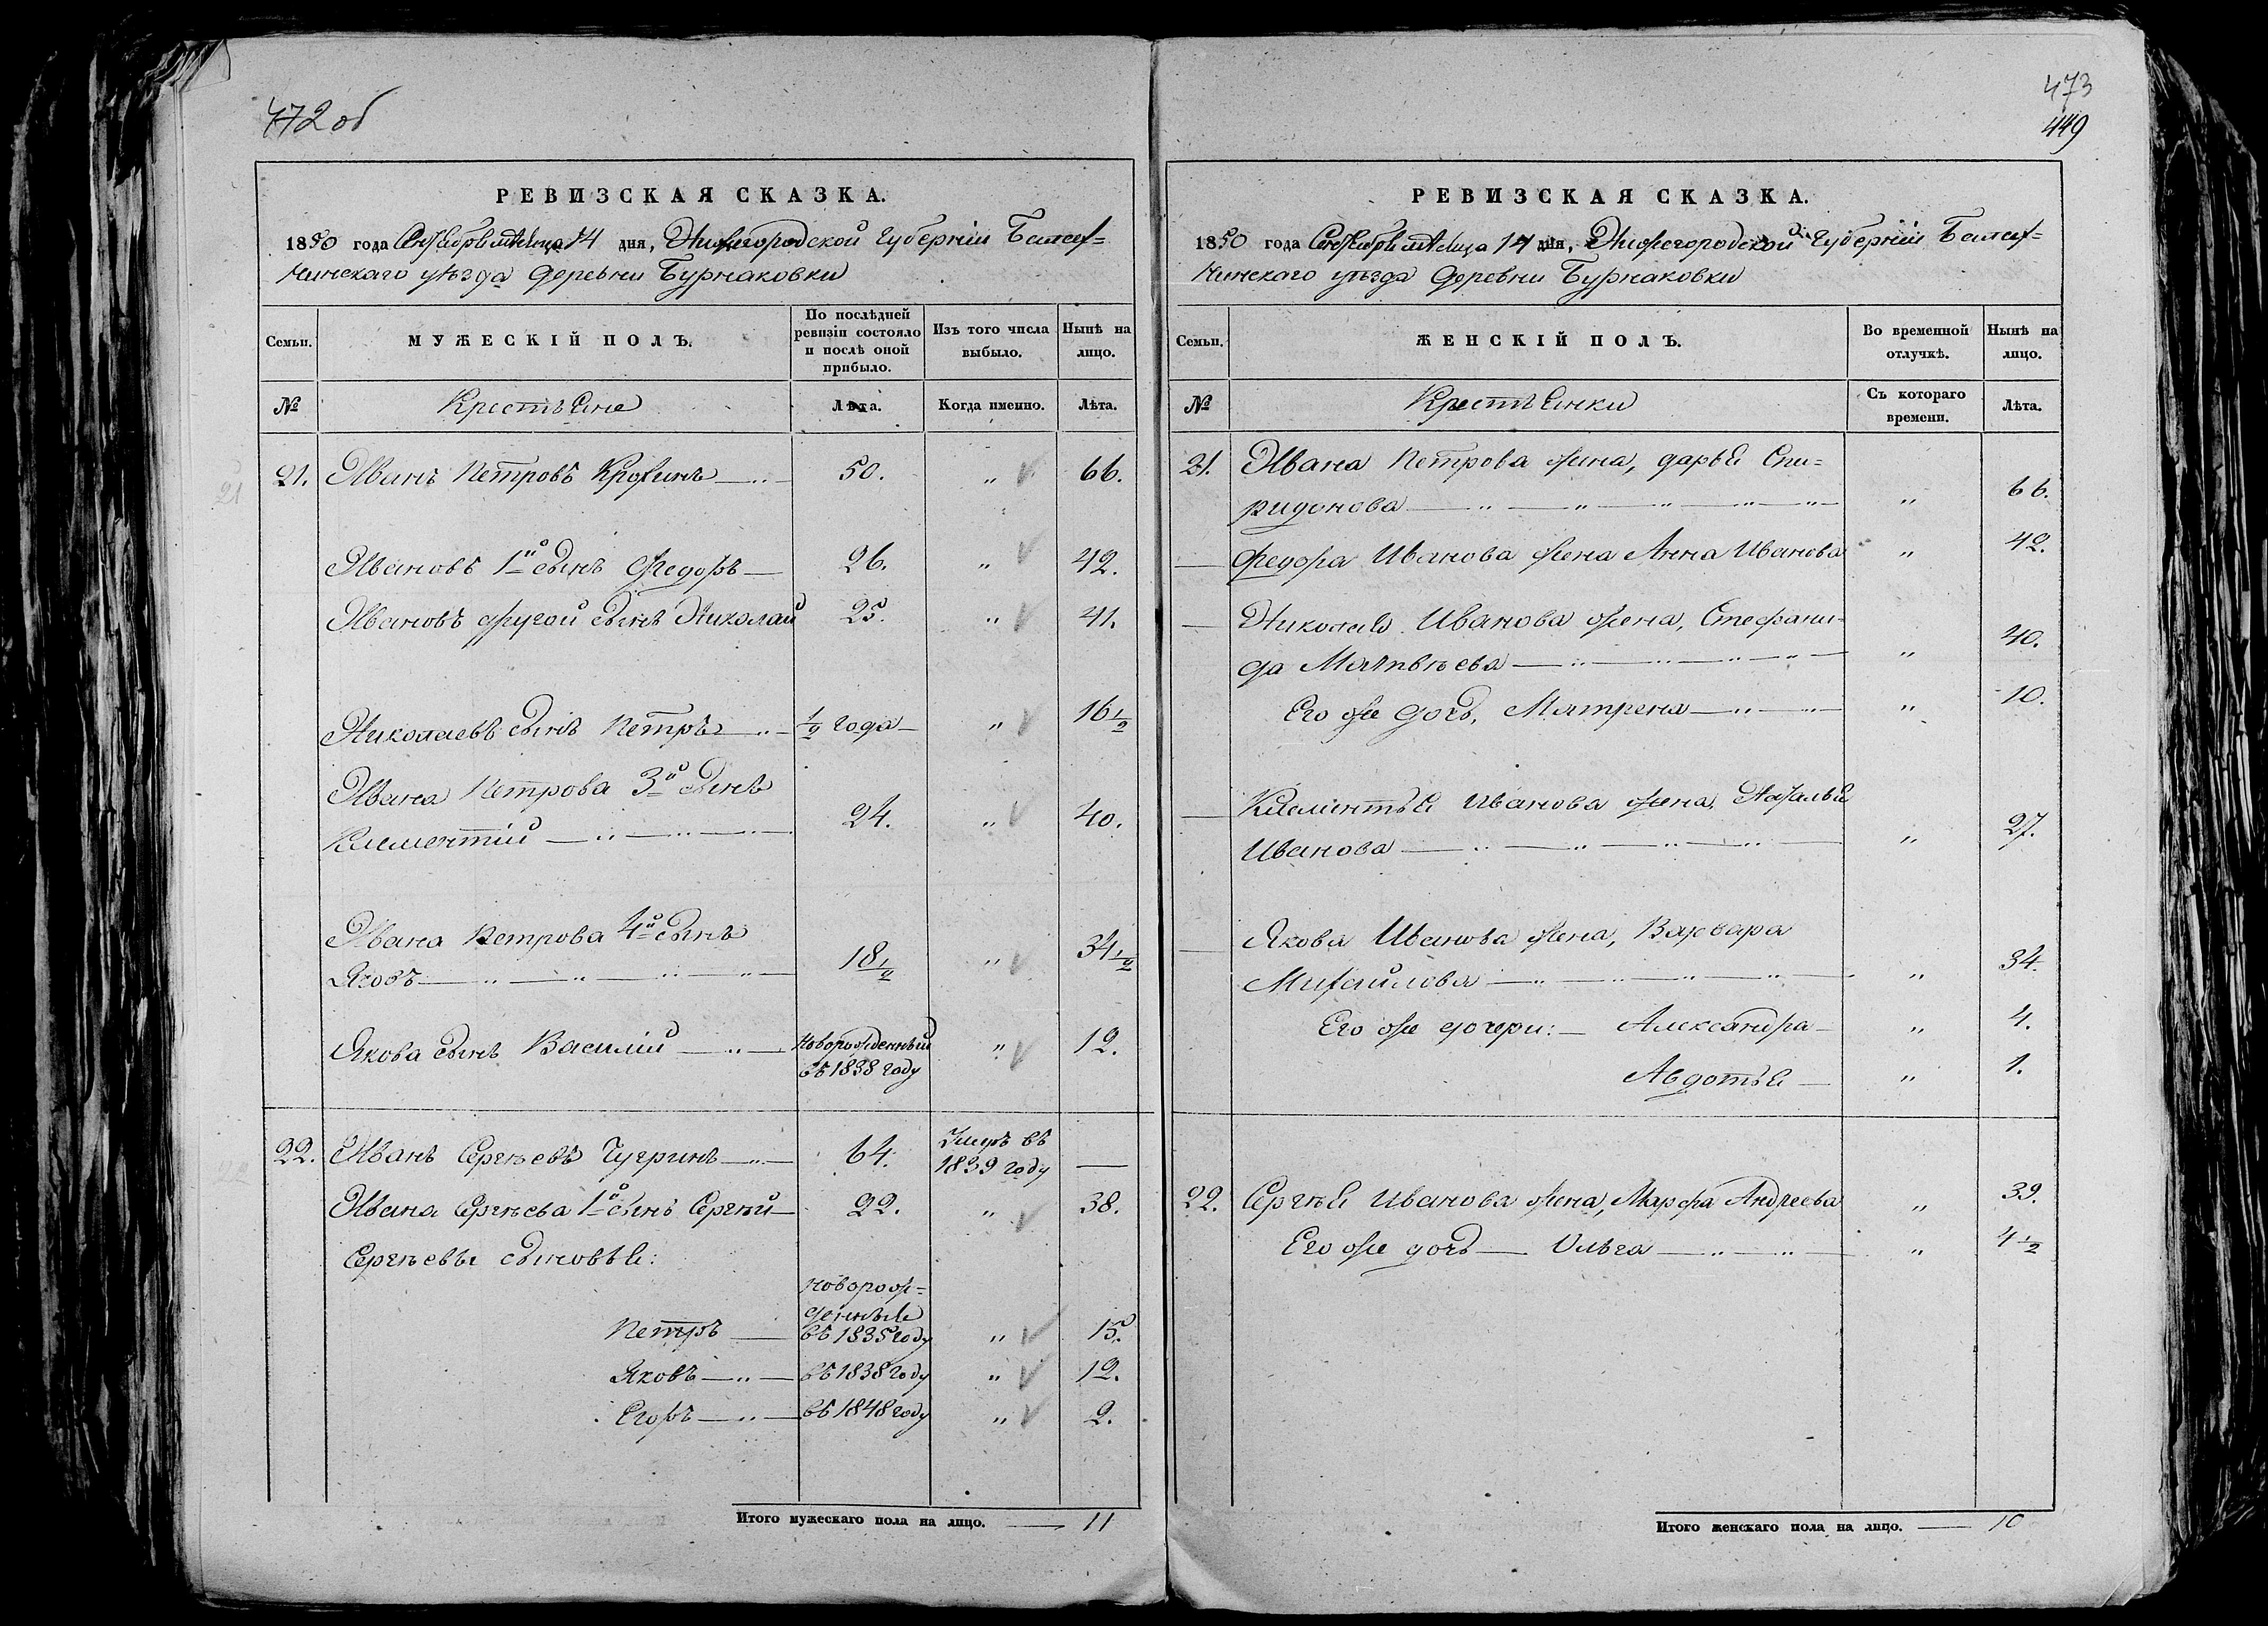 472 об
РЕВИЗСКАЯ СКАЗКА.
1850 года Сентября мѣсяца 14 дня, Нижегородской Губернiи Балах-
нинскаго уѣзда деревни Бурнаковки
Семьи.
МУЖЕСКІЙ ПОЛЪ.
По послѣдней
ревизіи состояло
и послѣ оной
прибыло.
Изъ того числа
выбыло.
Нынѣ на
лицо.
№
Крестьяне
Лѣта.
Когда именно.
Лѣта.
21. Иванъ Петровъ 50. " 66.
Ивановъ 1й сынъ Федоръ 26. " 42.
Ивановъ другой сынъ Николай 25. " 41.
Николаевъ сынъ Петръ 1/2 года " 16 1/2
Ивана Петрова 3й сынъ
Климентiй 24. " 40.
Ивана Петрова 4й сынъ
Яковъ 18 1/2 " 34 1/2
Якова сынъ Василiй новорожденный
въ 1838 году " 12.
22. Иванъ Сергѣевъ Чугринъ 64. Умеръ въ
1839 году —
Ивана Сергѣева 1й сынъ Сергѣй 22. " 38.
Сергѣевы сыновья:
новорож-
денные
Петръ въ 1835 году " 15.
Яковъ въ 1838 году " 12.
Егоръ въ 1848 году " 2.
Итого мужескаго пола на лицо. — 11
473
449
РЕВИЗСКАЯ СКАЗКА.
1850 года Сентября мѣсяца 14 дня, Нижегородской Губернiи Балах-
нинскаго уѣзда деревни Бурнаковки
Семьи.
ЖЕНСКІЙ ПОЛЪ.
Во временной
отлучкѣ.
Нынѣ на
лицо.
№
Крестьянки
Съ котораго
времени.
Лѣта.
21. Ивана Петрова жена, дарья Спи-
ридонова " 66.
Федора Иванова жена Анна Иванова " 42.
Николая Иванова жена, Стефани-
да Матвѣева " 40.
Его же дочь, Матрена " 10.
Климентья Иванова жена, Наталья
Иванова " 27.
Якова Иванова жена, Варвара
Михайлова " 34.
Его же дочери: — Александра " 4.
Авдотья " 1.
22. Сергѣя Иванова жена, Марфа Андреева " 39.
Его же дочь — Ольга " 4 1/2
Итого женскаго пола на лицо. — 10